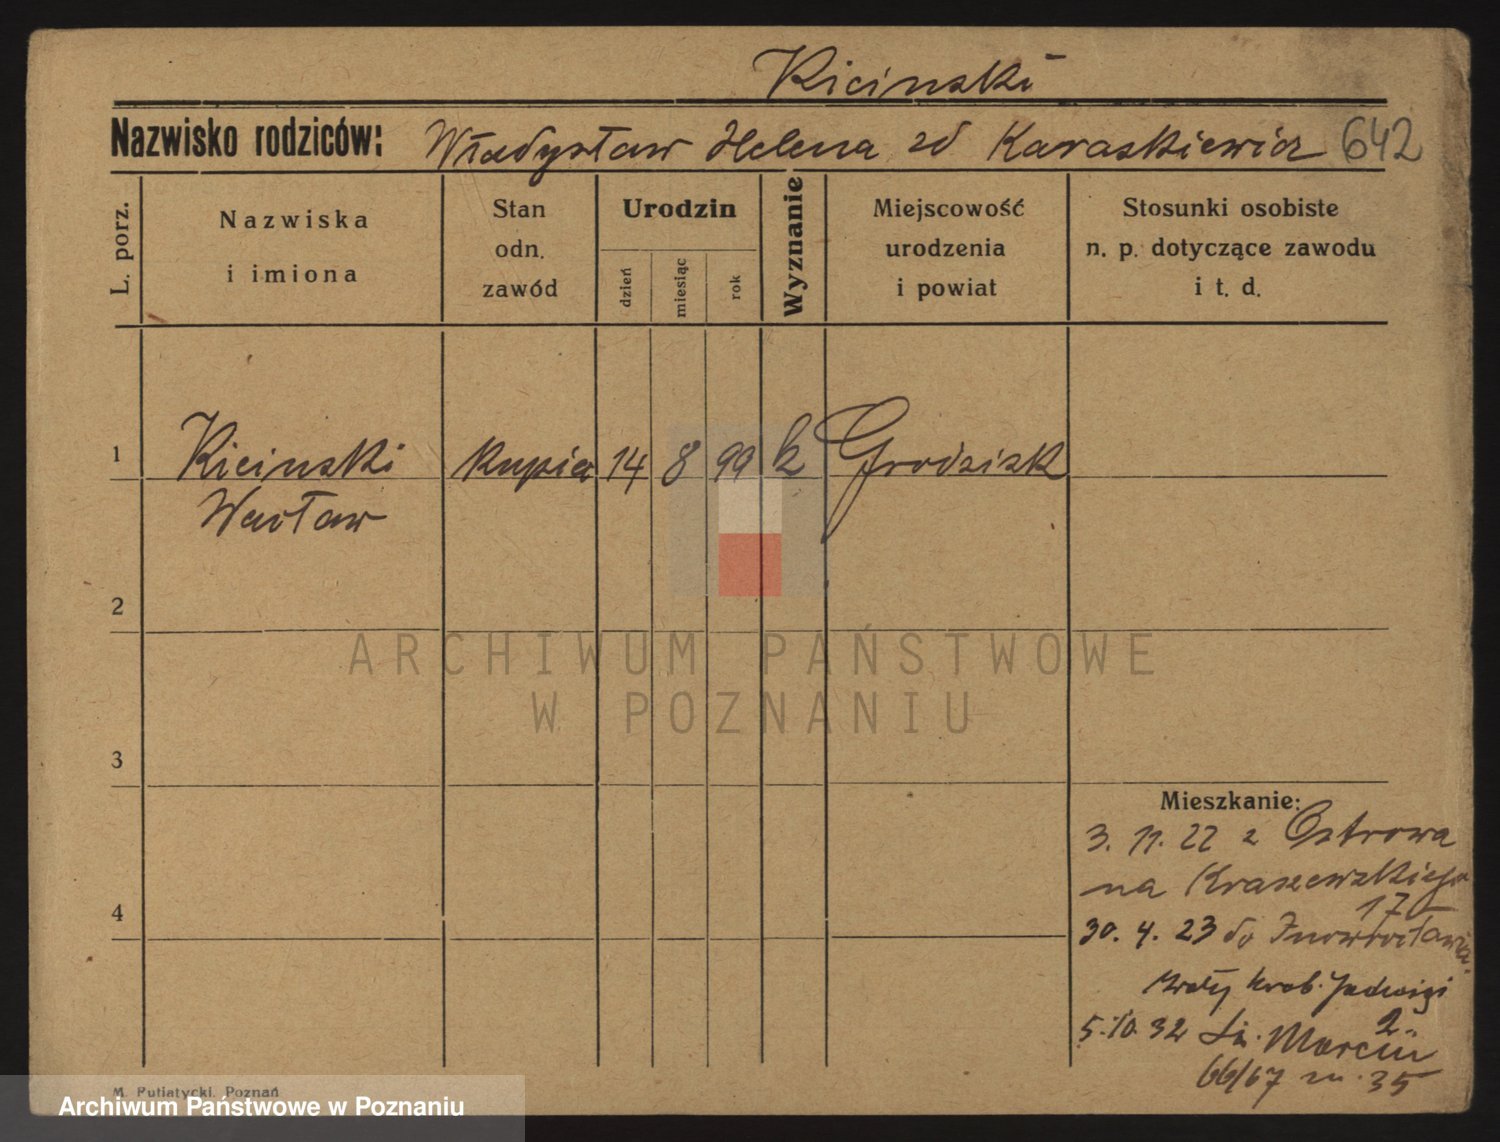 Kicinski
Nazwisko rodziców: Władysław Helena zd Karaskiewicz 642
L. porz.
Nazwiska
i imiona
Stan
odn.
zawód
Urodzin
dzień
miesiąc
rok
Wyznanie
Miejscowość
urodzenia
i powiat
Stosunki osobiste
n. p. dotyczące zawodu
i t. d.
1 Kicinski kupiec 14 8 99 k Grodzisk
Wacław
2
3
4
ARCHIWUM PAŃSTWOWE
W POZNANIU
Mieszkanie:
3. 11. 22 z Ostrowa
na Kraszewskiego
17
30. 4. 23 do Inowrocławia
Jadwigi
2
5. 10. 32 Św. Marcin
66/67 m. 35
M. Putiatycki, Poznań
Archiwum Państwowe w Poznaniu